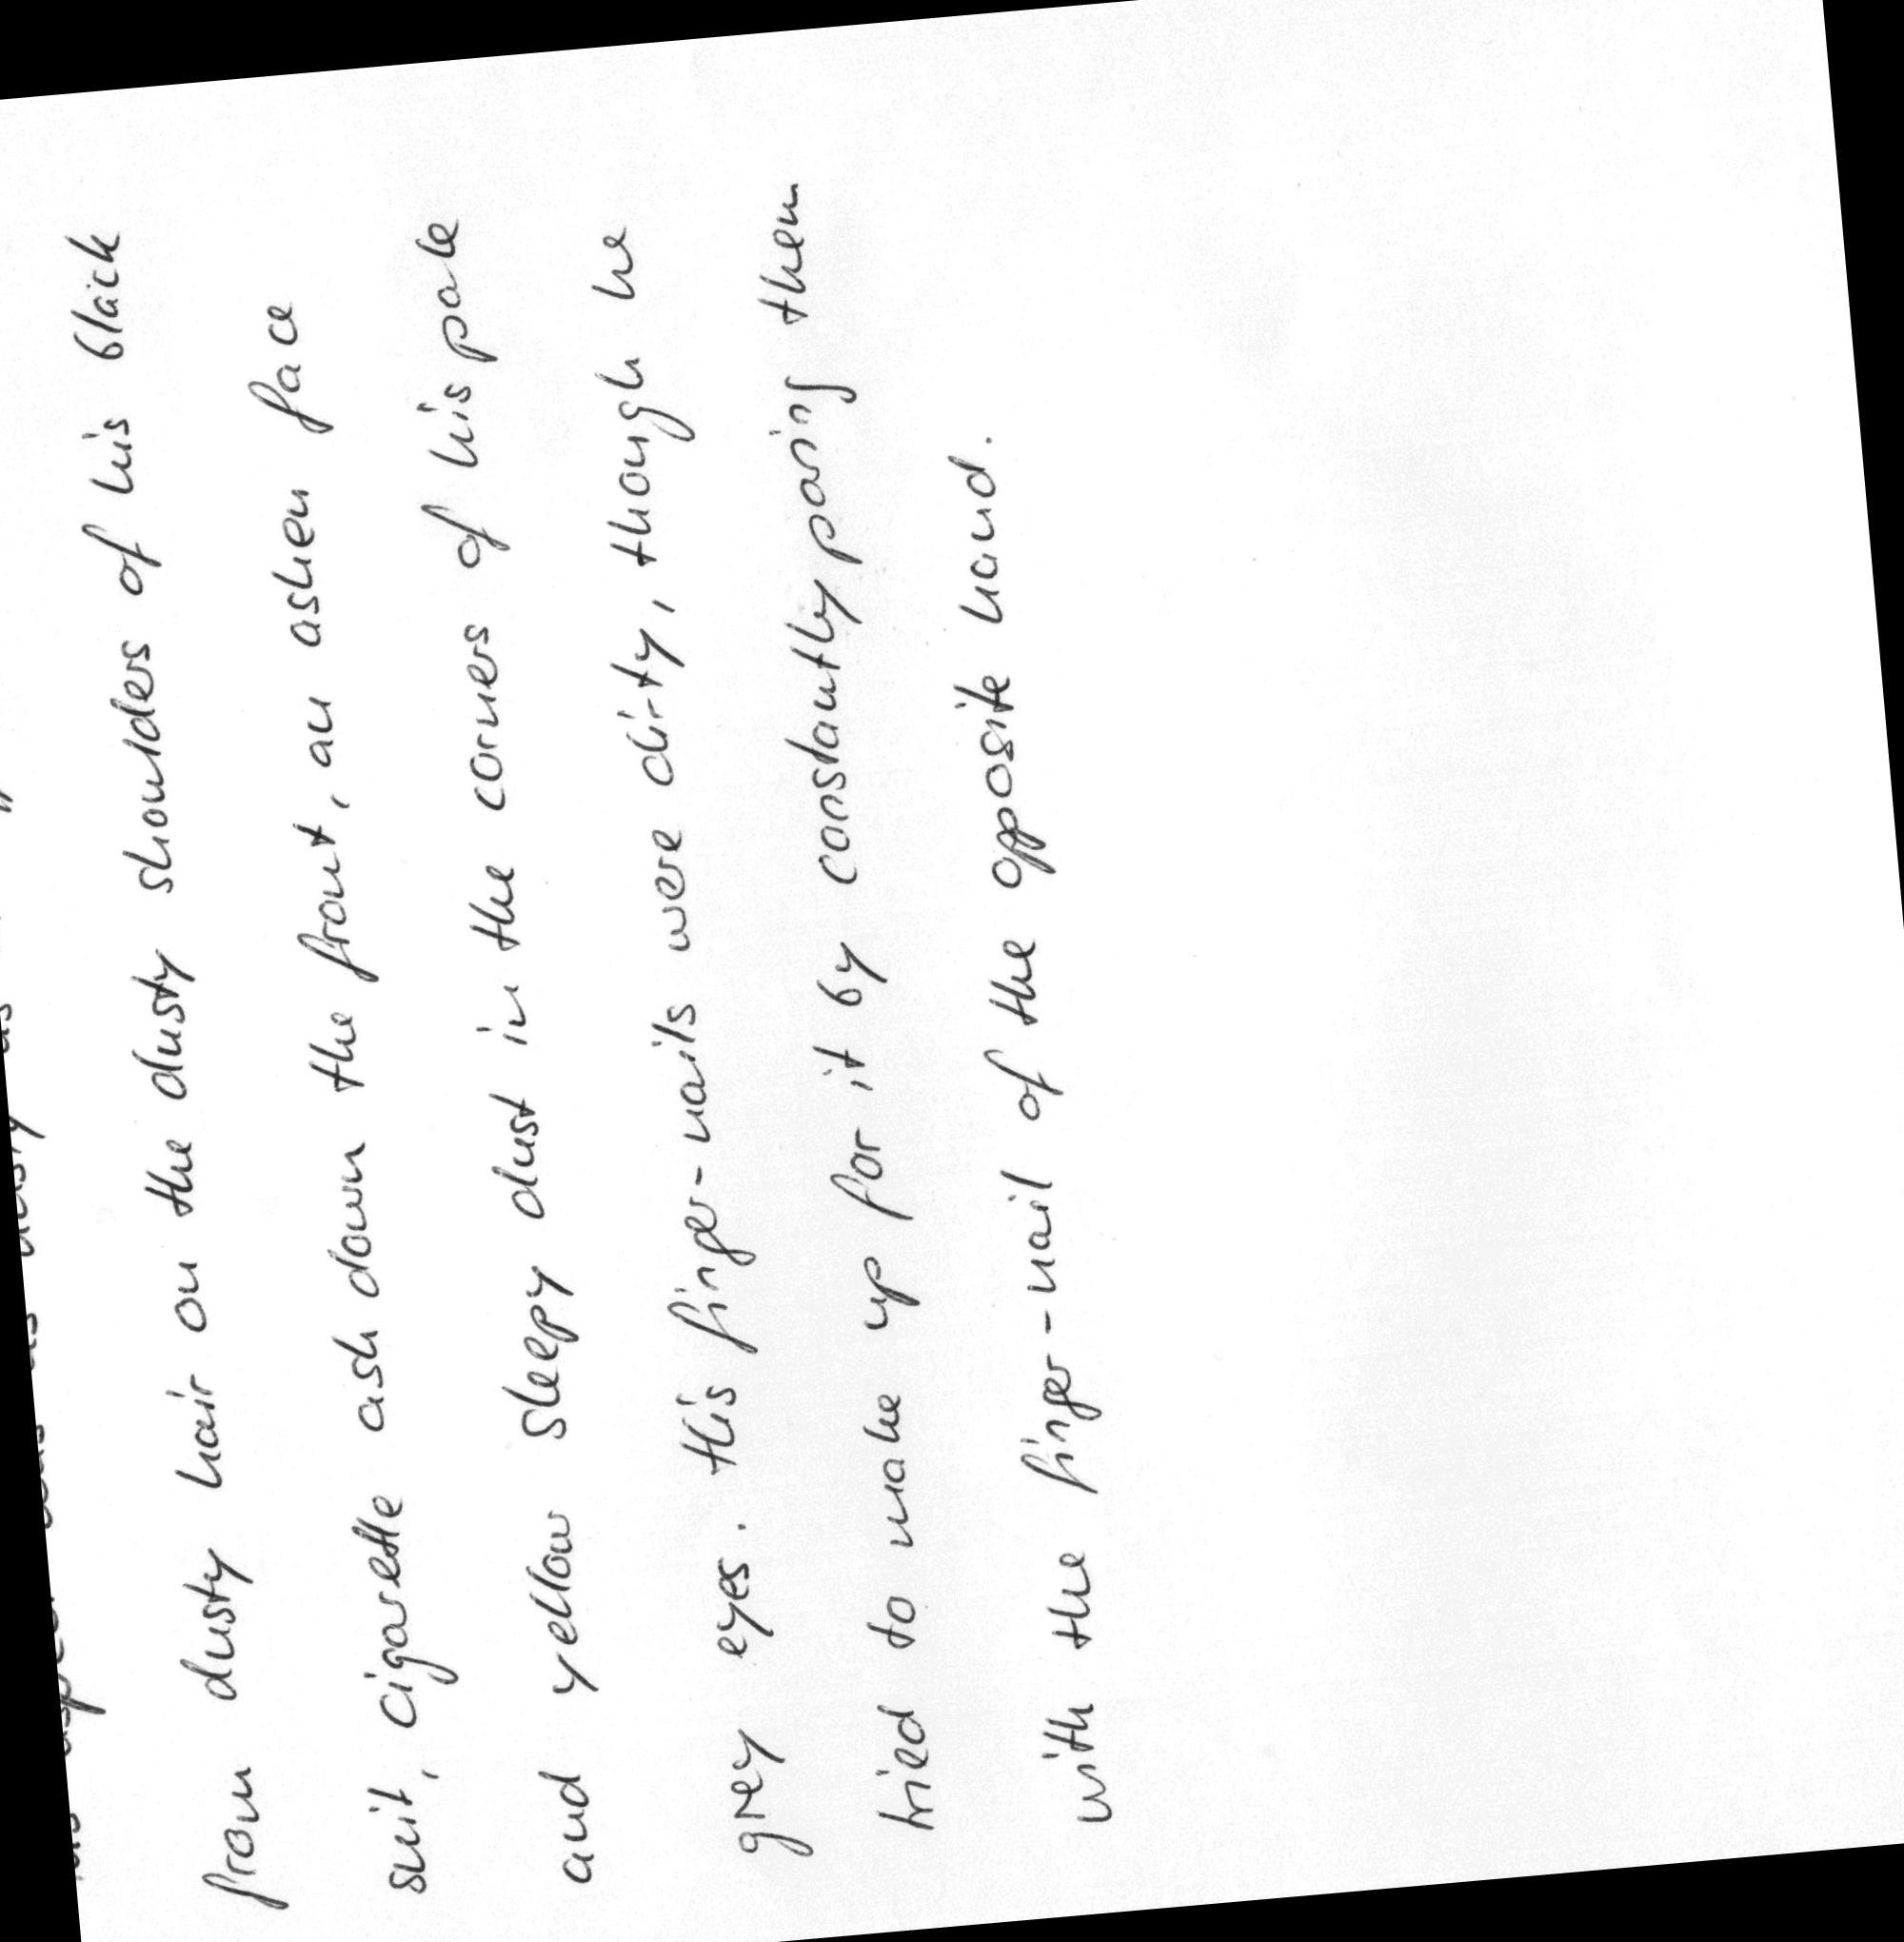 from dusty hair on the dusty shoulders of his black
suit, cigarette ash down the front, an ashen face
and yellow sleepy dust in the corners of his pale
grey eyes. His finger-nails were dirty, though he
tried to make up for it by constantly paring them
with the finger-nail of the opposite hand.